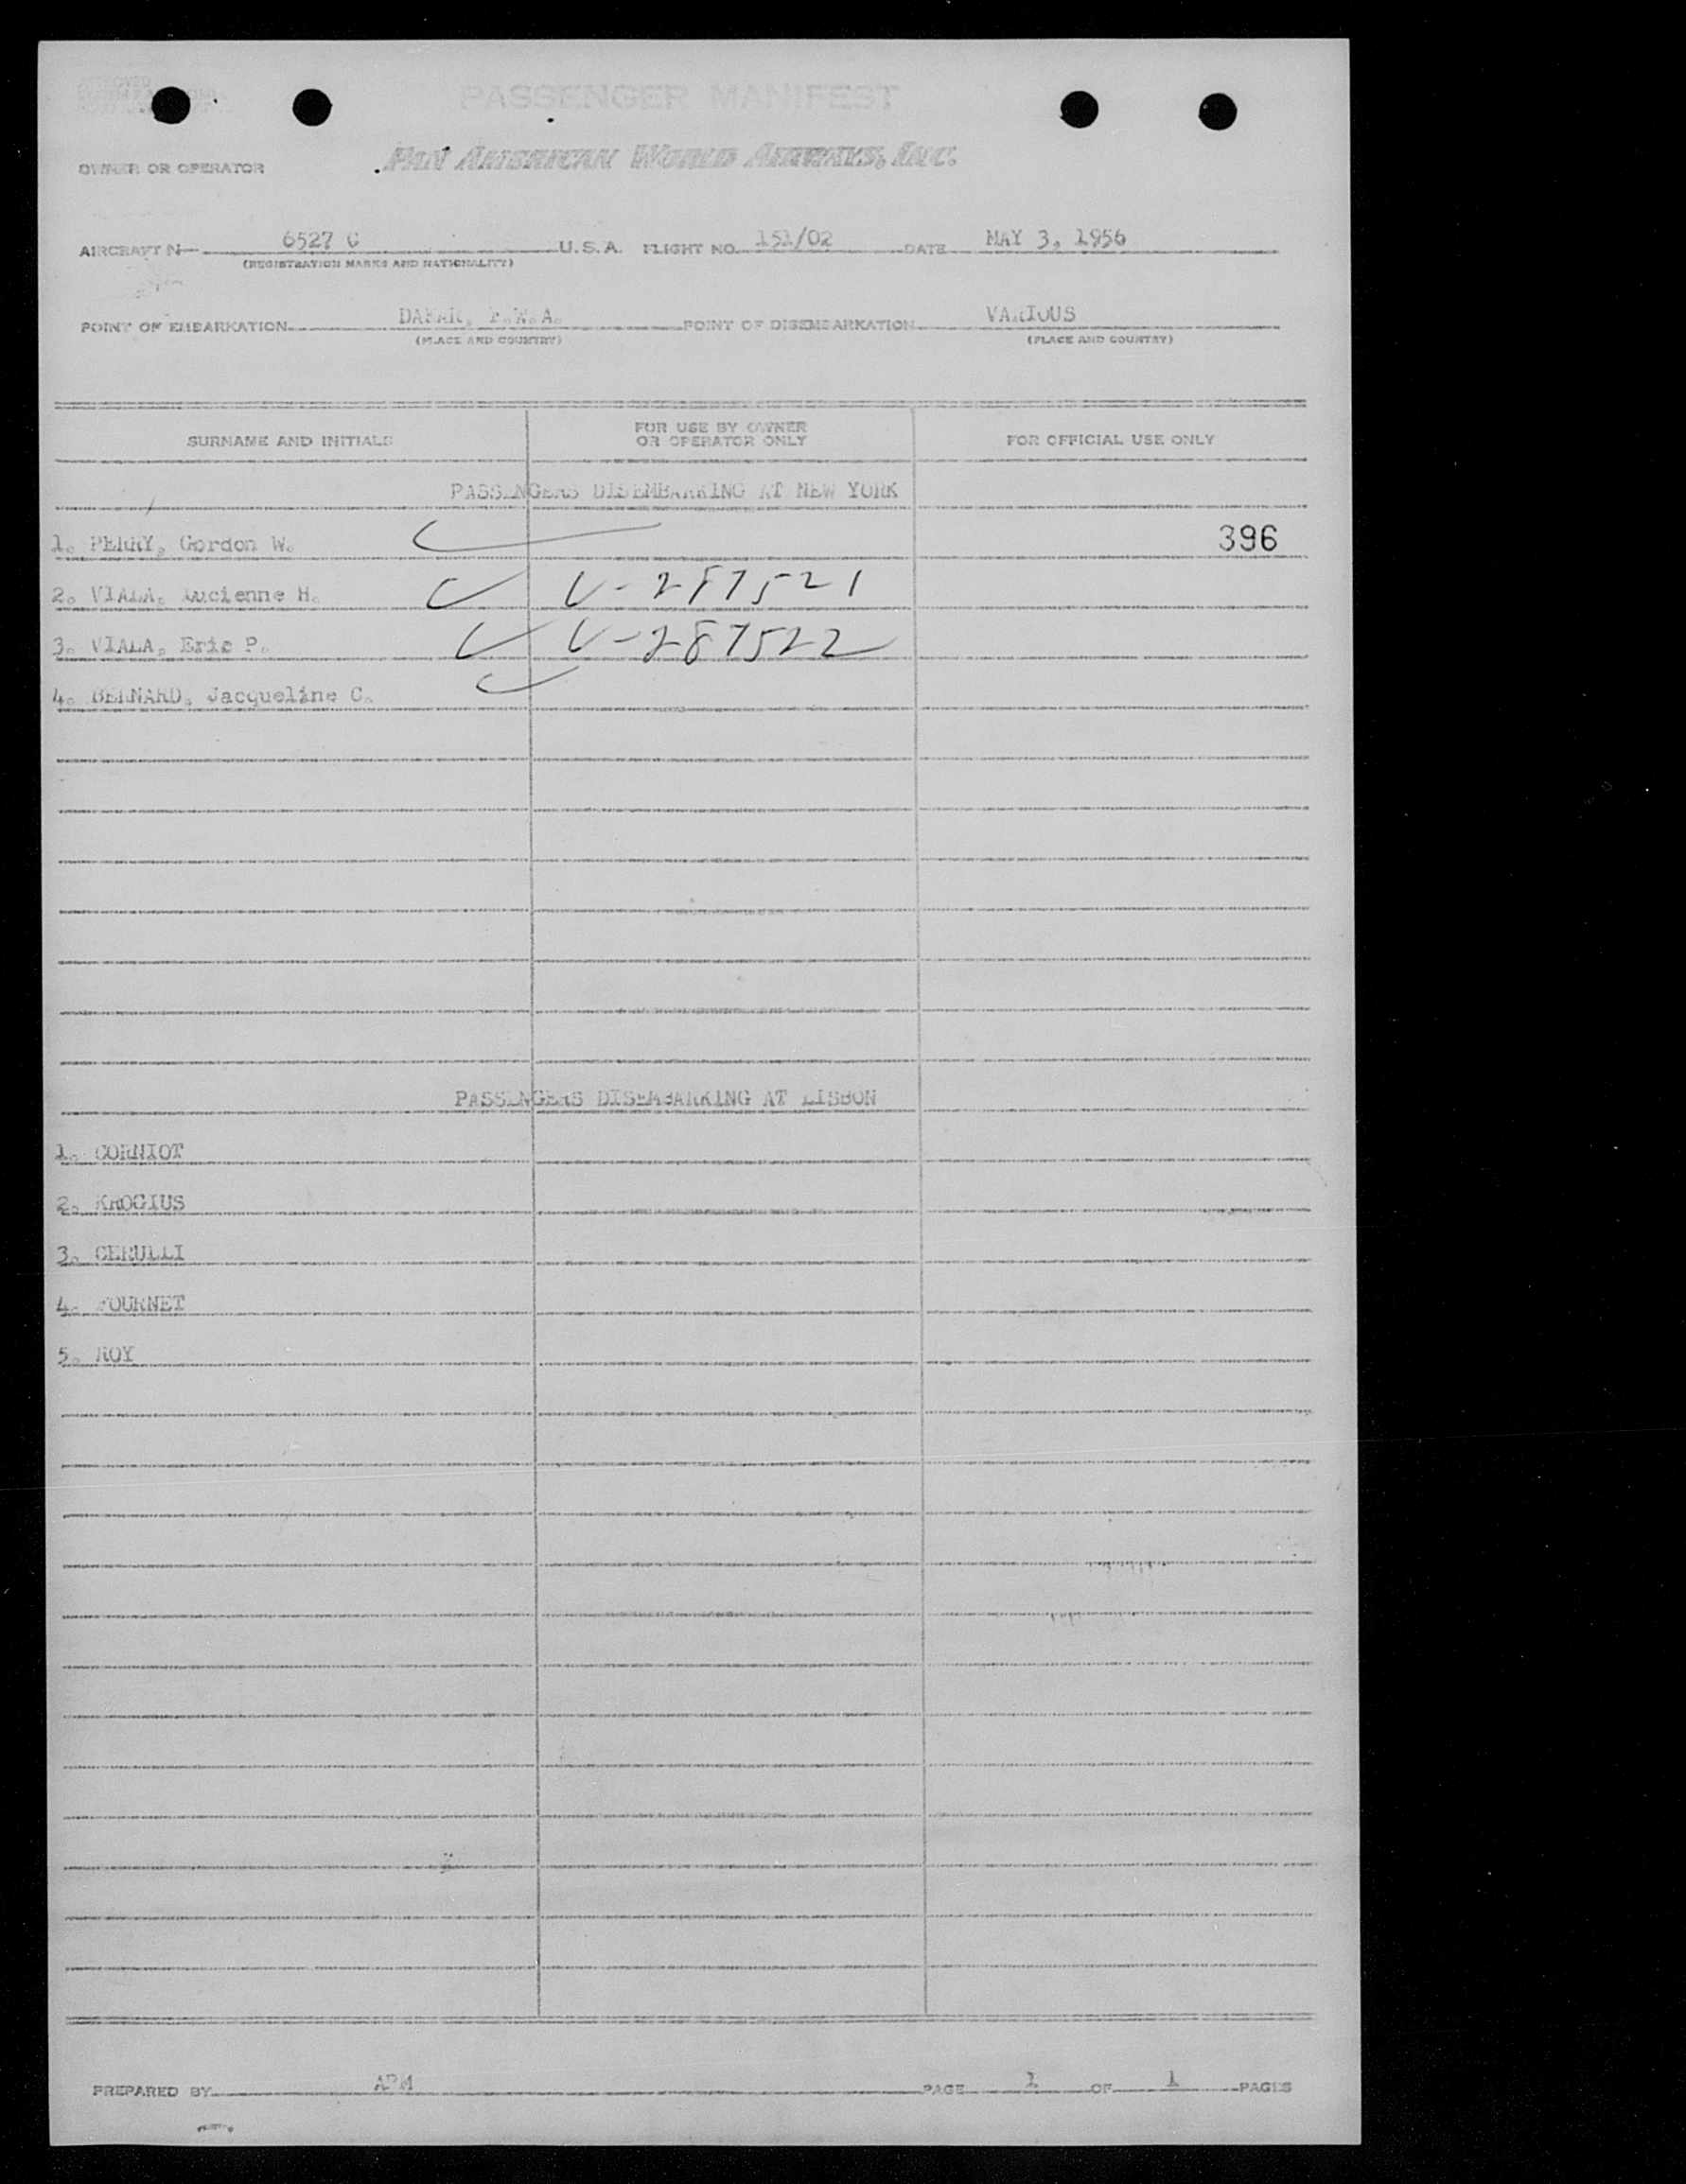 PASSENGER MANIFEST
OWNER OR OPERATOR PAN AMERICAN WORLD AIRWAYS, INC.
AIRCRAFT N 6527 C U.S.A. FLIGHT NO. 151/02 DATE MAY 3, 1956
(REGISTRATION MARKS AND NATIONALITY)
POINT OF EMBARKATION DAKAR, F.W.A. POINT OF DISEMBARKATION VARIOUS
(PLACE AND COUNTRY) (PLACE AND COUNTRY)
SURNAME AND INITIALS FOR USE BY OWNER OR OPERATOR ONLY FOR OFFICIAL USE ONLY
PASSENGERS DISEMBARKING AT NEW YORK
1. PERRY, Gordon W. 396
2. VIALA, Lucienne H. V-287521
3. VIALA, Eric P. V-287522
4. BERNARD, Jacqueline C.
PASSENGERS DISEMBARKING AT LISBON
1. CORNIOT
2. KROGIUS
3. CERULLI
4. FOURNET
5. ROY
PREPARED BY APM PAGE 1 OF 1 PAGES